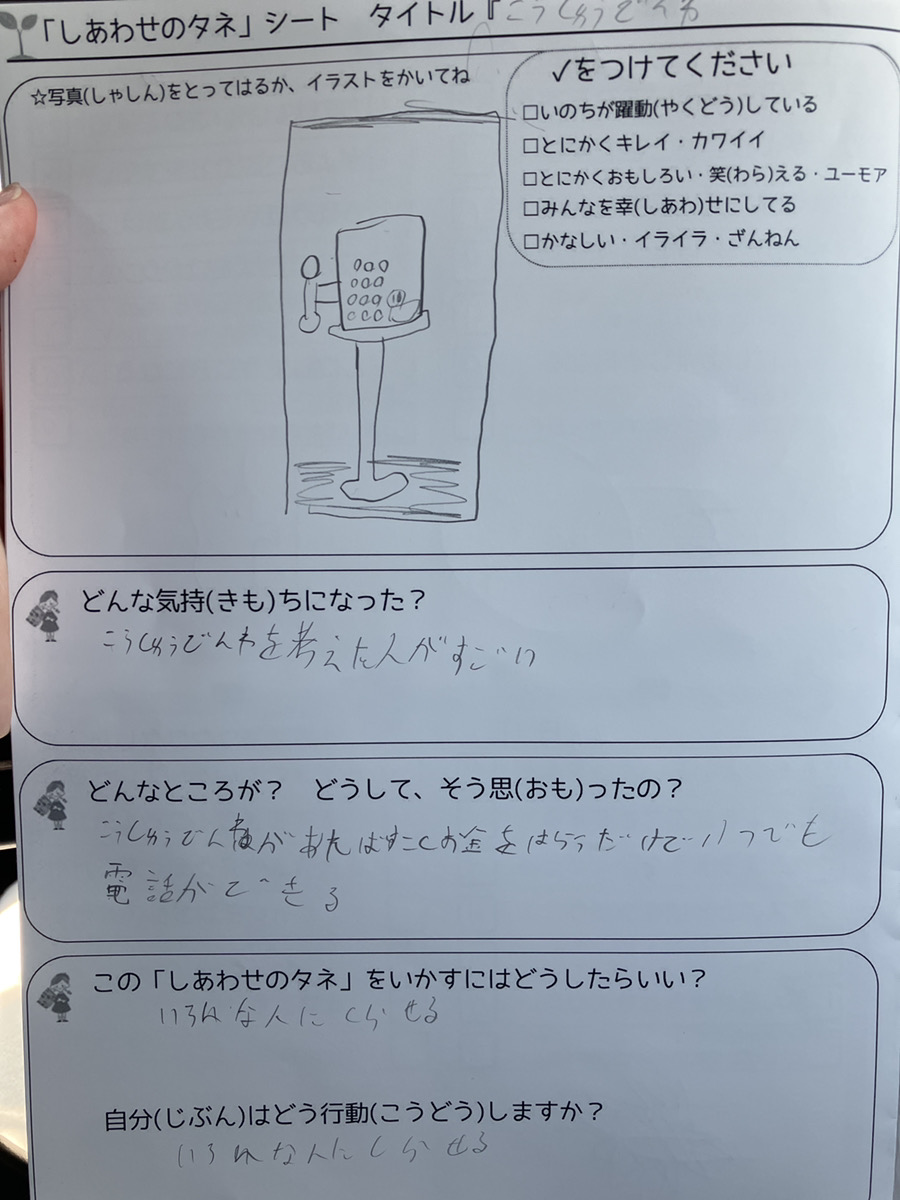 「しあわせのタネ」シート タイトル『こうしゅうでんわ
☆写真(しゃしん)をとってはるか、イラストをかいてね
✓をつけてください
□いのちが躍動(やくどう)している
□とにかくキレイ・カワイイ
□とにかくおもしろい・笑(わら)える・ユーモア
□みんなを幸(しあわ)せにしてる
□かなしい・イライラ・ざんねん
10
どんな気持(きも)ちになった?
こうしゅうでんわを考えた人がすごい
どんなところが? どうして、そう思(おも)ったの?
こうしゅうでんがあればすこしお金をはらうだけでいつでも
電話ができる
この「しあわせのタネ」をいかすにはどうしたらいい?
いろんな人にしらせる
自分(じぶん)はどう行動(こうどう)しますか?
いろんな人にしらせる